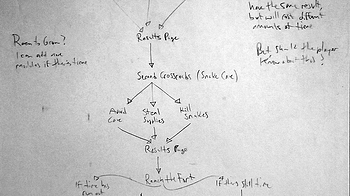 have the same result,
but will cost different
amounts of time
Room to Grow?
I can add more
puzzles if there is time
Results Page
But should the player
know about this?
Second Crossroads (Snake Cave)
Avoid
Cave
Steal
Supplies
Kill
Snakes
Results Page
Reach the Fort
If time has
run out
If there's still time